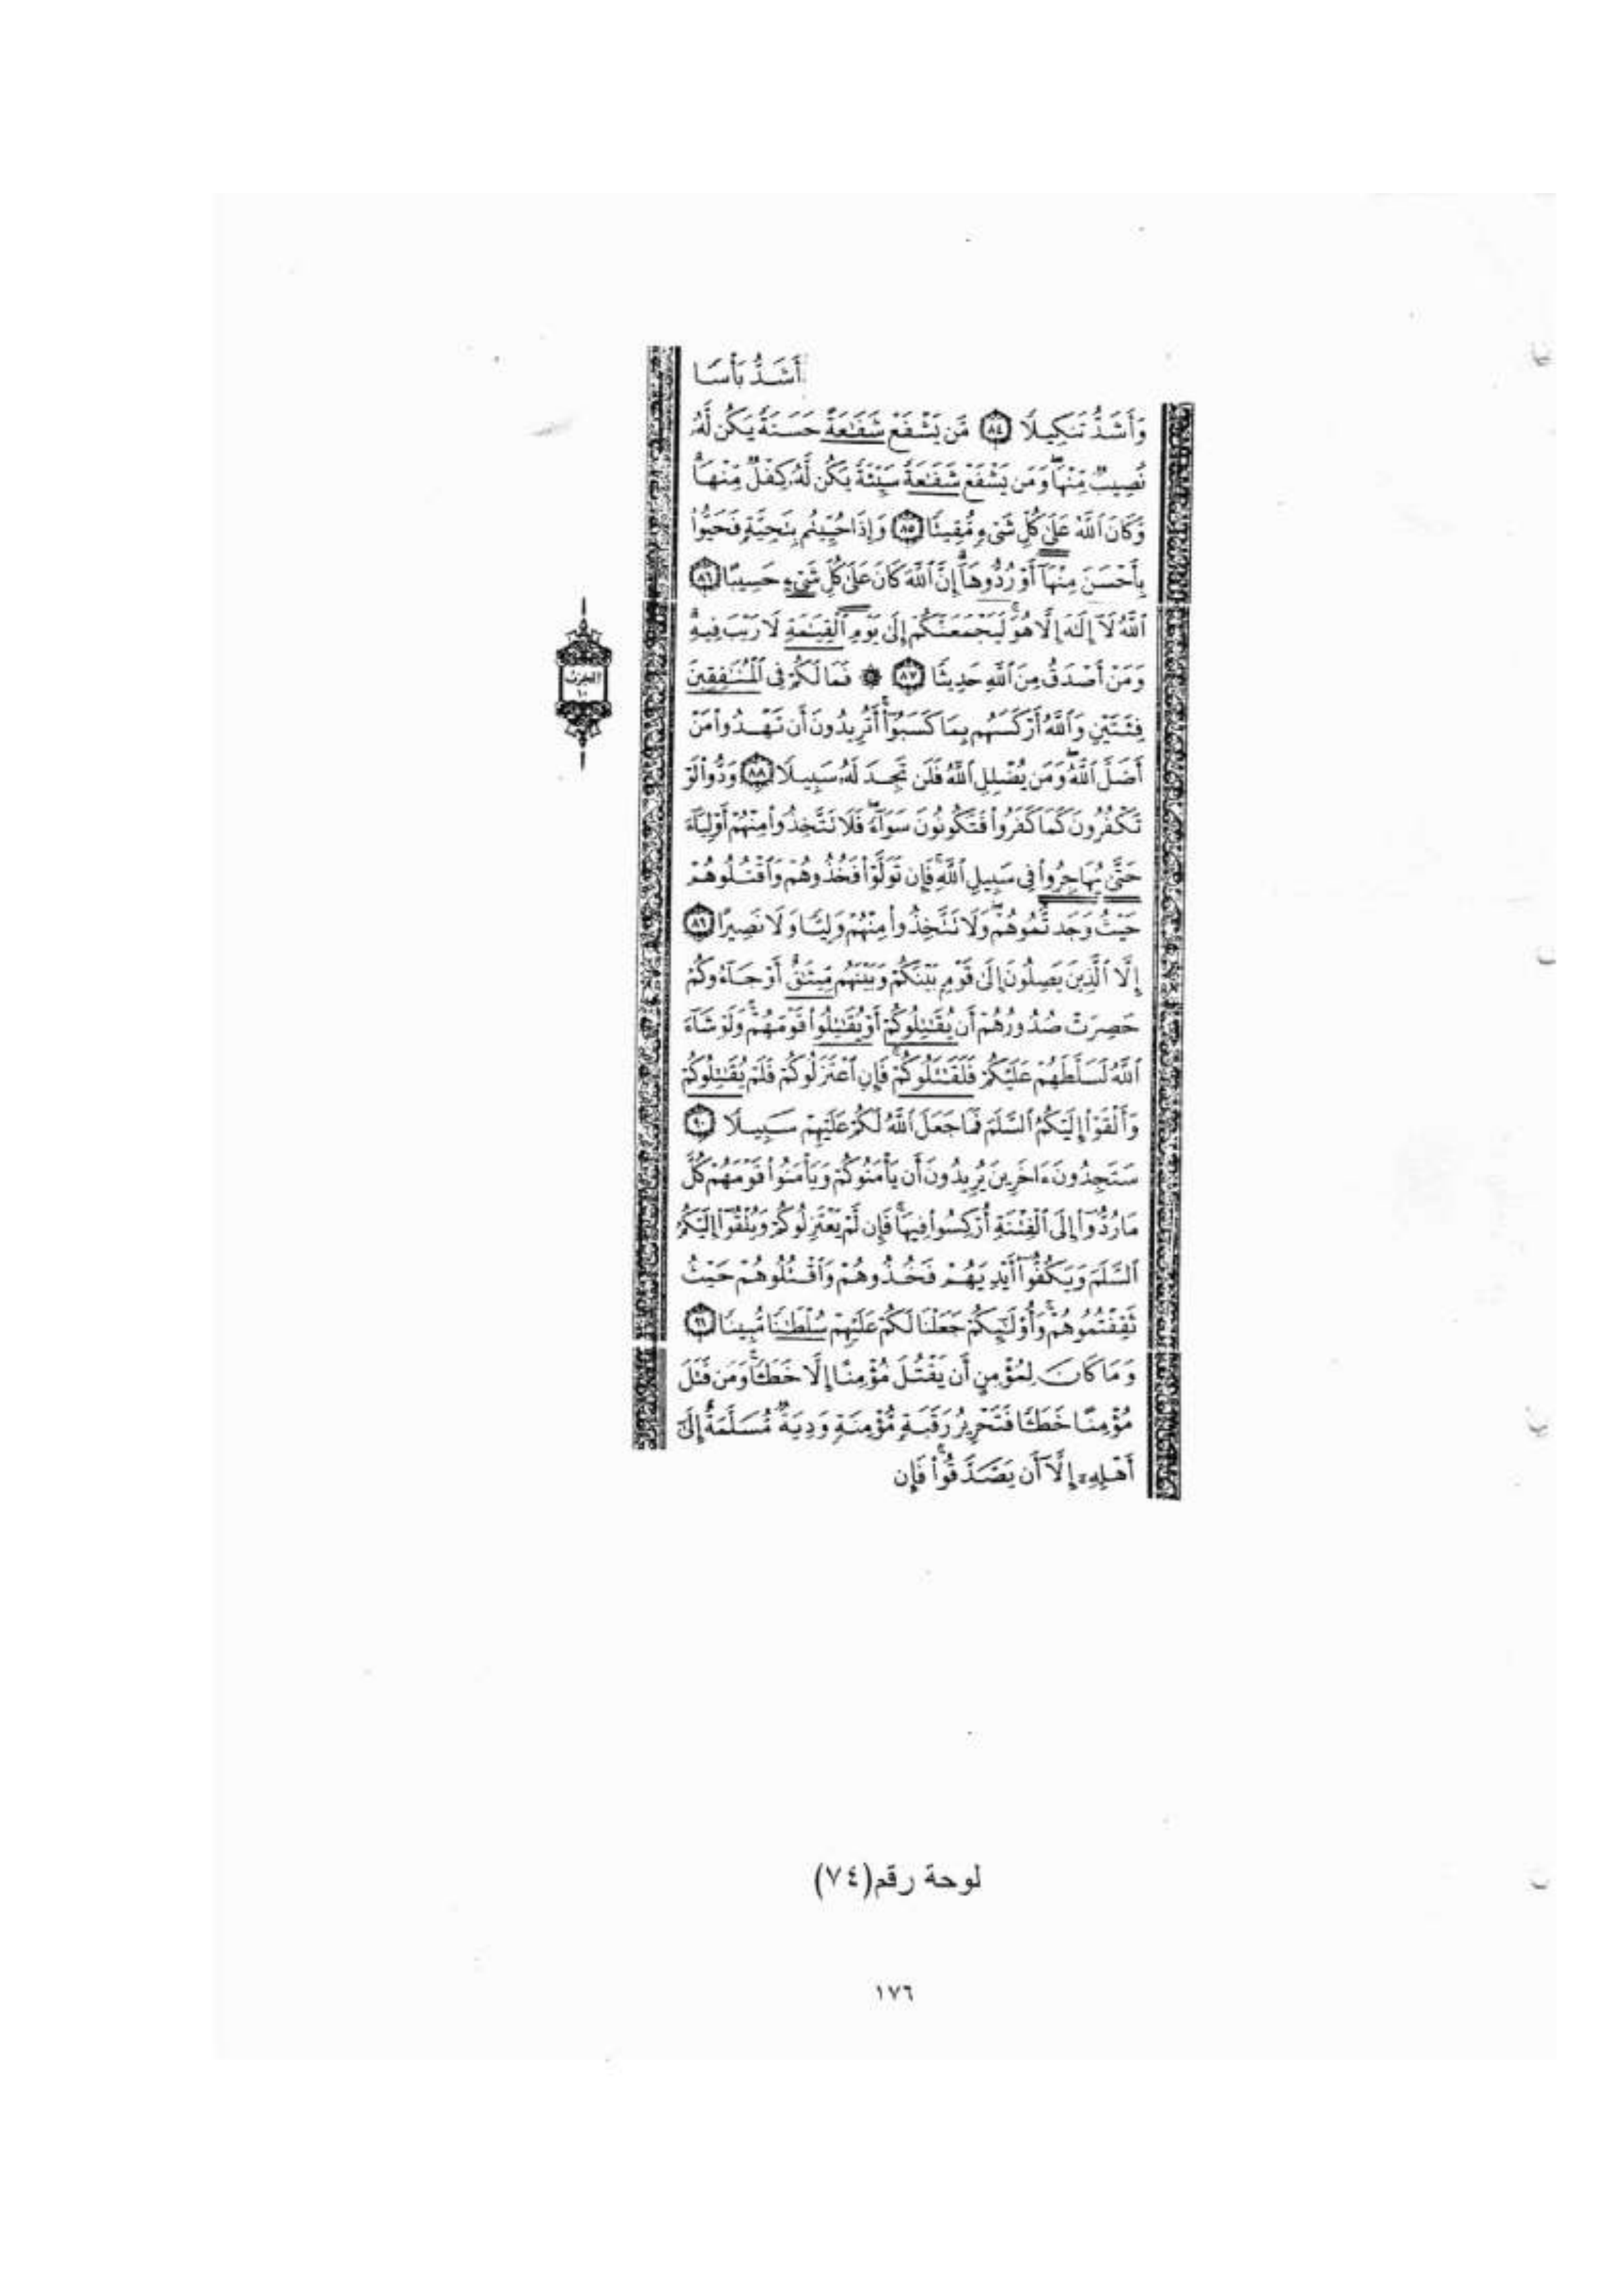 أَشَدُّ بَأْسًا
وَأَشَدُّ تَنكِيلًا ٨٤ مَّن يَشْفَعْ شَفَٰعَةً حَسَنَةً يَكُن لَّهُۥ
نَصِيبٌ مِّنْهَا ۖ وَمَن يَشْفَعْ شَفَٰعَةً سَيِّئَةً يَكُن لَّهُۥ كِفْلٌ مِّنْهَا ۗ
وَكَانَ ٱللَّهُ عَلَىٰ كُلِّ شَىْءٍ مُّقِيتًا ٨٥ وَإِذَا حُيِّيتُم بِتَحِيَّةٍ فَحَيُّوا۟
بِأَحْسَنَ مِنْهَآ أَوْ رُدُّوهَآ ۗ إِنَّ ٱللَّهَ كَانَ عَلَىٰ كُلِّ شَىْءٍ حَسِيبًا ٨٦
ٱللَّهُ لَآ إِلَٰهَ إِلَّا هُوَ ۚ لَيَجْمَعَنَّكُمْ إِلَىٰ يَوْمِ ٱلْقِيَٰمَةِ لَا رَيْبَ فِيهِ ۗ
وَمَنْ أَصْدَقُ مِنَ ٱللَّهِ حَدِيثًا ٨٧ ۞ فَمَا لَكُمْ فِى ٱلْمُنَٰفِقِينَ
الحزب
١٠
فِئَتَيْنِ وَٱللَّهُ أَرْكَسَهُم بِمَا كَسَبُوٓا۟ ۚ أَتُرِيدُونَ أَن تَهْدُوا۟ مَنْ
أَضَلَّ ٱللَّهُ ۖ وَمَن يُضْلِلِ ٱللَّهُ فَلَن تَجِدَ لَهُۥ سَبِيلًا ٨٨ وَدُّوا۟ لَوْ
تَكْفُرُونَ كَمَا كَفَرُوا۟ فَتَكُونُونَ سَوَآءً ۖ فَلَا تَتَّخِذُوا۟ مِنْهُمْ أَوْلِيَآءَ
حَتَّىٰ يُهَاجِرُوا۟ فِى سَبِيلِ ٱللَّهِ ۚ فَإِن تَوَلَّوْا۟ فَخُذُوهُمْ وَٱقْتُلُوهُمْ
حَيْثُ وَجَدتُّمُوهُمْ ۖ وَلَا تَتَّخِذُوا۟ مِنْهُمْ وَلِيًّا وَلَا نَصِيرًا ٨٩
إِلَّا ٱلَّذِينَ يَصِلُونَ إِلَىٰ قَوْمٍۭ بَيْنَكُمْ وَبَيْنَهُم مِّيثَٰقٌ أَوْ جَآءُوكُمْ
حَصِرَتْ صُدُورُهُمْ أَن يُقَٰتِلُوكُمْ أَوْ يُقَٰتِلُوا۟ قَوْمَهُمْ ۚ وَلَوْ شَآءَ
ٱللَّهُ لَسَلَّطَهُمْ عَلَيْكُمْ فَلَقَٰتَلُوكُمْ ۚ فَإِنِ ٱعْتَزَلُوكُمْ فَلَمْ يُقَٰتِلُوكُمْ
وَأَلْقَوْا۟ إِلَيْكُمُ ٱلسَّلَمَ فَمَا جَعَلَ ٱللَّهُ لَكُمْ عَلَيْهِمْ سَبِيلًا ٩٠
سَتَجِدُونَ ءَاخَرِينَ يُرِيدُونَ أَن يَأْمَنُوكُمْ وَيَأْمَنُوا۟ قَوْمَهُمْ كُلَّ
مَا رُدُّوٓا۟ إِلَى ٱلْفِتْنَةِ أُرْكِسُوا۟ فِيهَا ۚ فَإِن لَّمْ يَعْتَزِلُوكُمْ وَيُلْقُوٓا۟ إِلَيْكُمُ
ٱلسَّلَمَ وَيَكُفُّوٓا۟ أَيْدِيَهُمْ فَخُذُوهُمْ وَٱقْتُلُوهُمْ حَيْثُ
ثَقِفْتُمُوهُمْ ۚ وَأُو۟لَٰٓئِكُمْ جَعَلْنَا لَكُمْ عَلَيْهِمْ سُلْطَٰنًا مُّبِينًا ٩١
وَمَا كَانَ لِمُؤْمِنٍ أَن يَقْتُلَ مُؤْمِنًا إِلَّا خَطَـًٔا ۚ وَمَن قَتَلَ
مُؤْمِنًا خَطَـًٔا فَتَحْرِيرُ رَقَبَةٍ مُّؤْمِنَةٍ وَدِيَةٌ مُّسَلَّمَةٌ إِلَىٰٓ
أَهْلِهِۦٓ إِلَّآ أَن يَصَّدَّقُوا۟ ۚ فَإِن
لوحة رقم(٧٤)
١٧٦